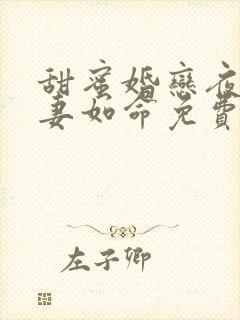 甜蜜婚戀夜
妻如命免費
左子卿